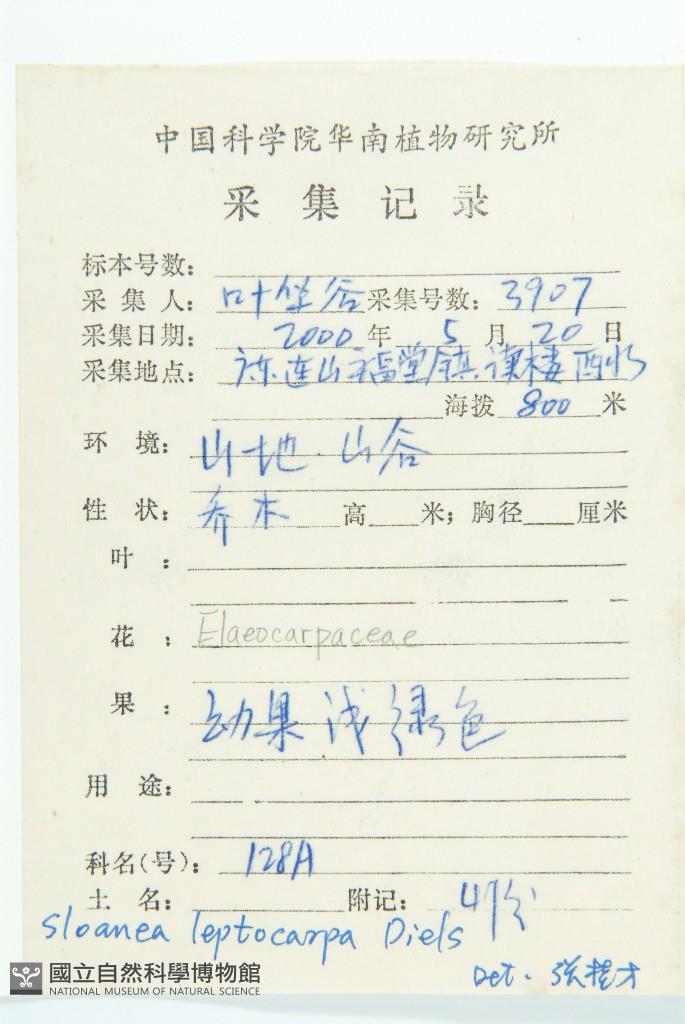 中国科学院华南植物研究所
采集记录
标本号数:
采集人: 叶华谷 采集号数: 3907
采集日期: 2000年 5月 20日
采集地点: 广东连山福堂镇
海拨 800 米
环境: 山地.山谷
性状: 乔木 高 米; 胸径 厘米
叶:
花: Elaeocarpaceae
果: 幼果浅绿色
用途:
科名(号): 128A
土名: 附记: 4份
Sloanea leptocarpa Diels
Det. 张桂才
國立自然科學博物館
NATIONAL MUSEUM OF NATURAL SCIENCE